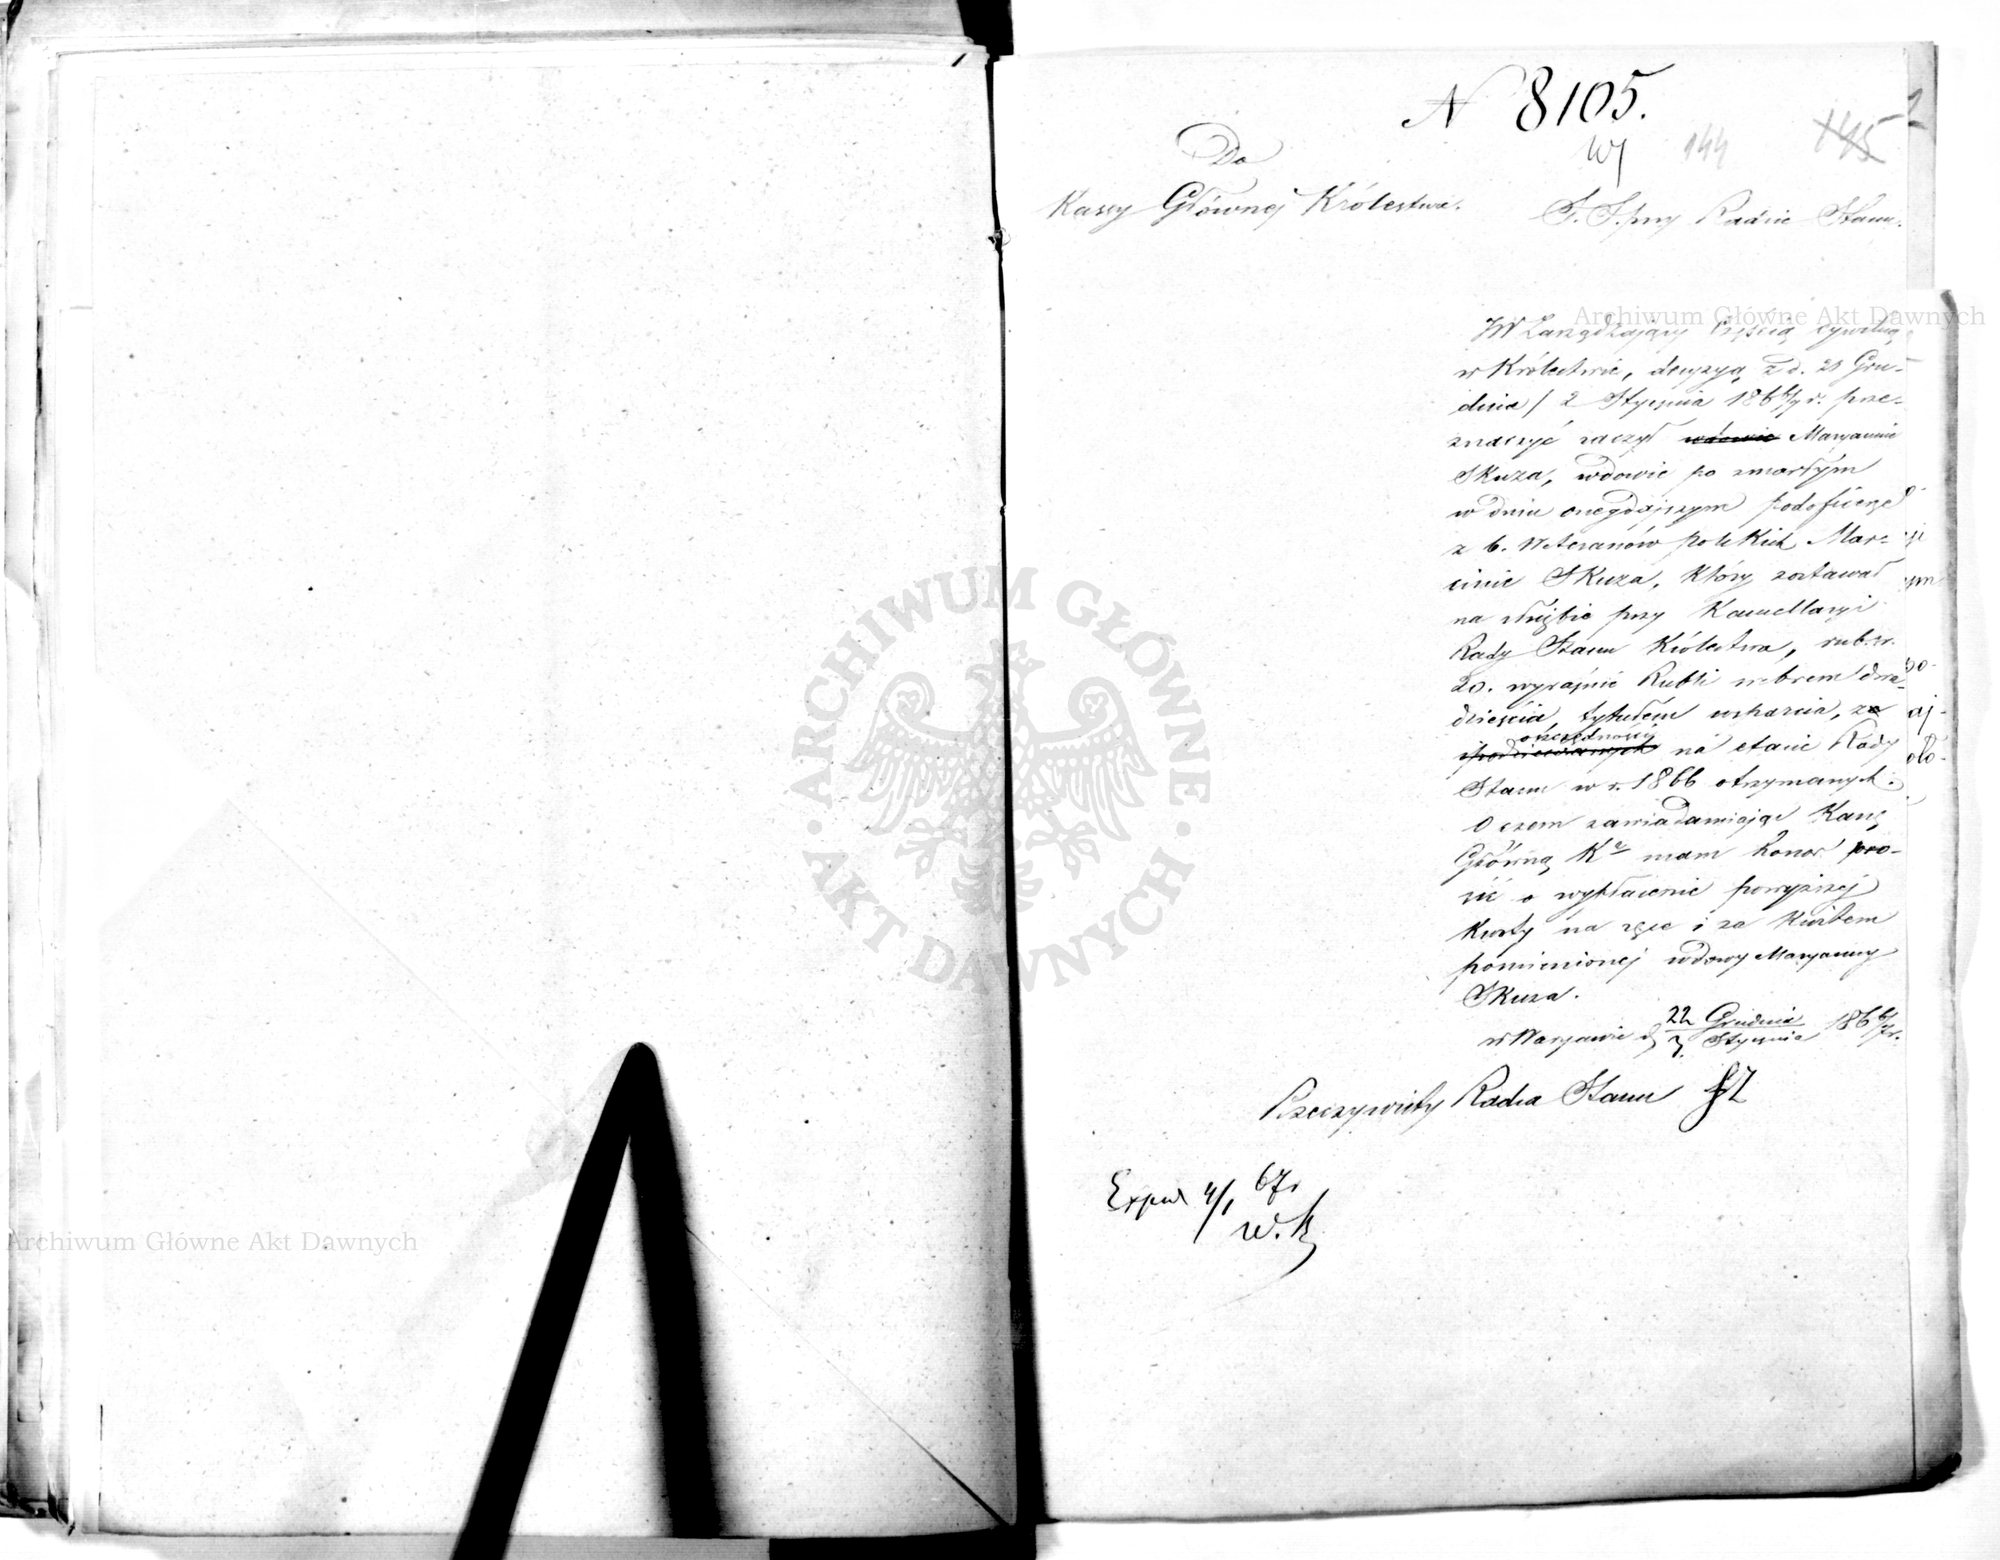 N 8105.
144
145
Do
Kassy Głównej Królestwa.
S. S. przy Radzie Stanu.
JW Zarządzający Częścią cywilną
w Królestwie, decyzyą z d. 21 Gru-
dnia / 2 Stycznia 1866/7 r. prze-
znaczyć raczył wdowie Maryannie
Skuza, wdowie po zmarłym
w dniu onegdajszym podoficerze
z b. Weteranów polskich Mar-
cinie Skuza, który zostawał
na służbie przy Kancellaryi
Rady Stanu Królestwa, rub. sr.
20. wyraźnie Rubli srebrem dwa-
dzieścia, tytułem wsparcia, z
oszczędności
na etacie Rady
Stanu w r. 1866 otrzymanych.
O czem zawiadamiając Kassę
Główną Kr mam honor pro-
sić o wypłacenie powyższej
kwoty na ręce i za kwitem
pomienionej wdowy Maryanny
Skuza.
w Warszawie d 22 Grudnia / 3 Stycznia 1866/7 r.
Rzeczywisty Radca Stanu
Exped 4/1 67 r
w. K
ARCHIWUM GŁÓWNE AKT DAWNYCH
Archiwum Główne Akt Dawnych
Archiwum Główne Akt Dawnych